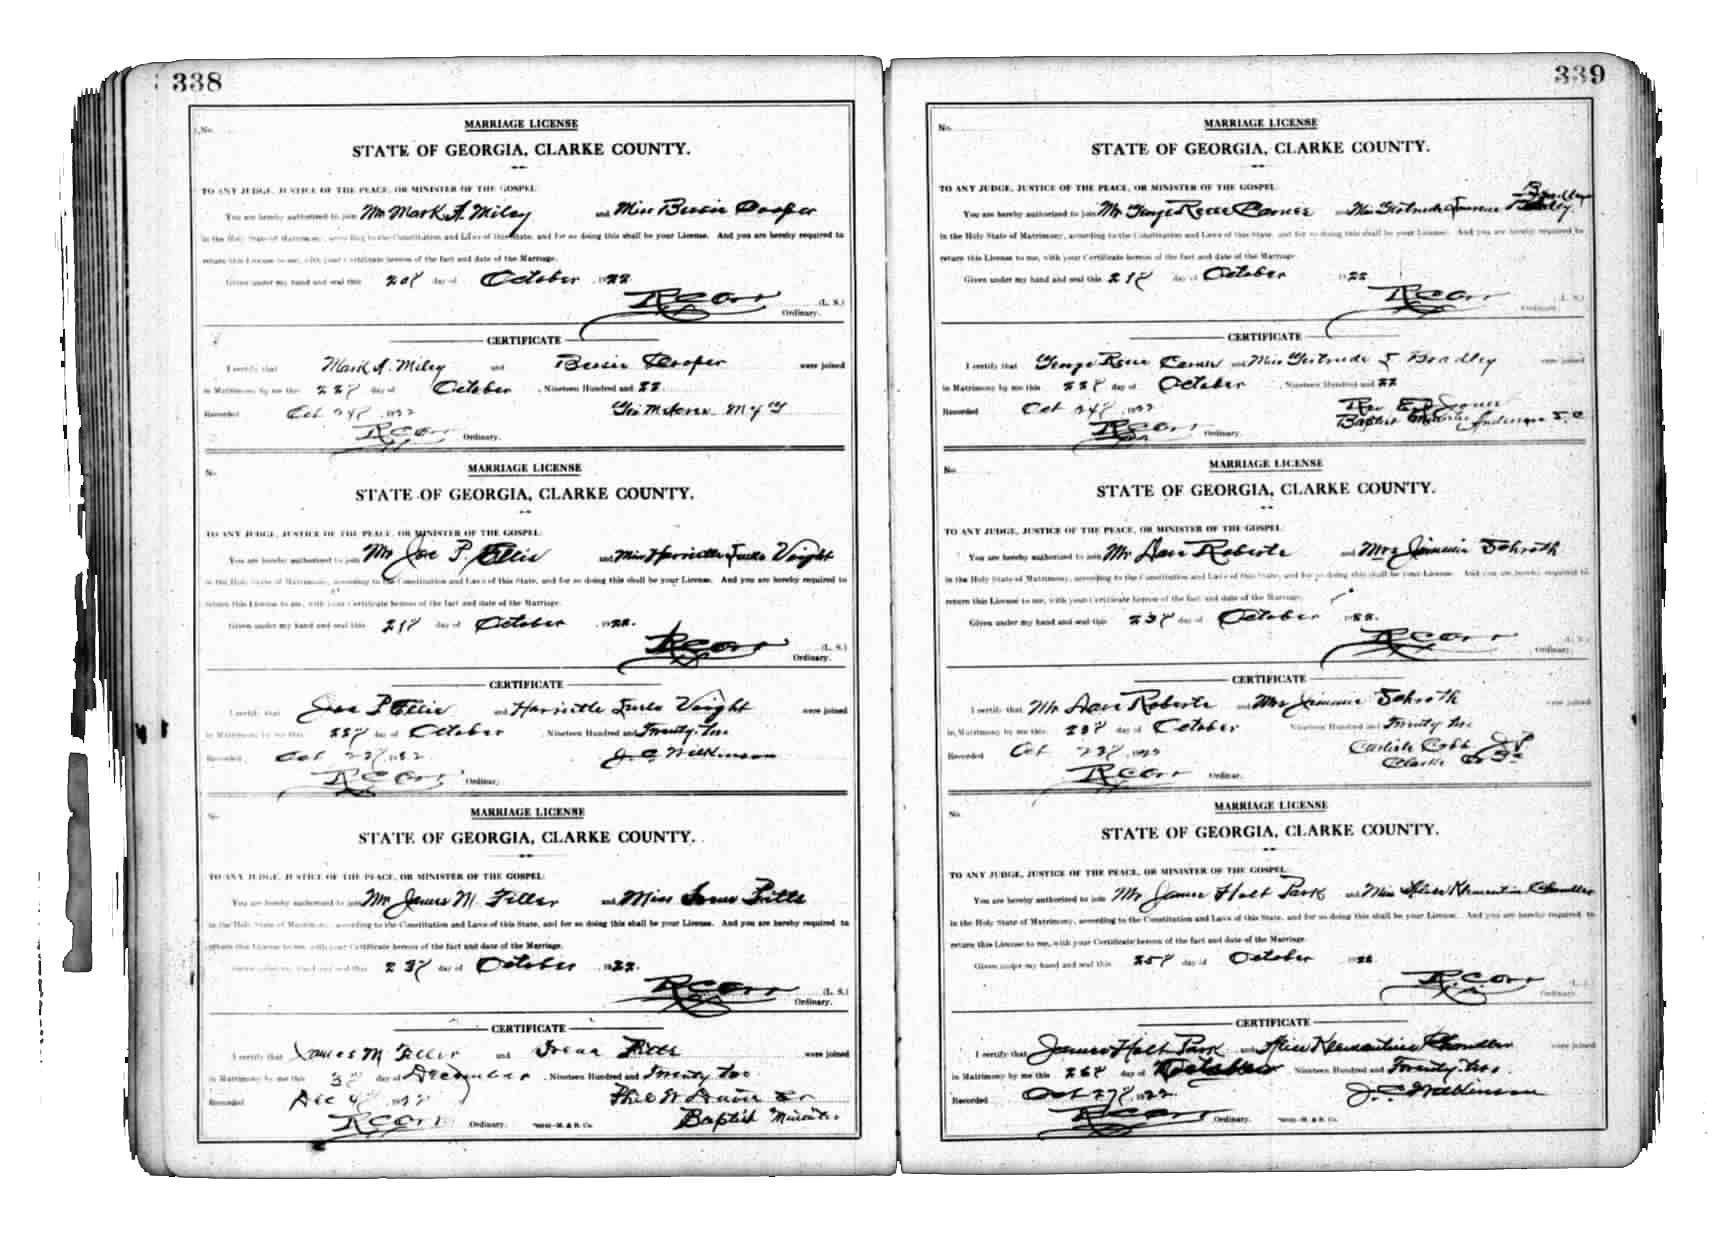 338
No.
MARRIAGE LICENSE
STATE OF GEORGIA, CLARKE COUNTY.
TO ANY JUDGE, JUSTICE OF THE PEACE, OR MINISTER OF THE GOSPEL:
You are hereby authorized to join Mr Mark A. Miley and Miss Bessie Cooper
in the Holy State of Matrimony, according to the Constitution and Laws of this State, and for so doing this shall be your License. And you are hereby required to
return this License to me, with your Certificate hereon of the fact and date of the Marriage.
Given under my hand and seal this 20th day of October 1922
R C Orr (L. S.)
Ordinary.
CERTIFICATE
I certify that Mark A. Miley and Bessie Cooper were joined
in Matrimony by me this 22 day of October, Nineteen Hundred and 22.
Recorded Oct 24 1922
R C Orr Ordinary.
No.
MARRIAGE LICENSE
STATE OF GEORGIA, CLARKE COUNTY.
TO ANY JUDGE, JUSTICE OF THE PEACE, OR MINISTER OF THE GOSPEL:
You are hereby authorized to join Mr Joe P. Ellis and Miss Harriette Voight
in the Holy State of Matrimony, according to the Constitution and Laws of this State, and for so doing this shall be your License. And you are hereby required to
return this License to me, with your Certificate hereon of the fact and date of the Marriage.
Given under my hand and seal this 21 day of October 1922.
R C Orr (L. S.)
Ordinary.
CERTIFICATE
I certify that Joe P Ellis and Harriette Voight were joined
in Matrimony by me this 22 day of October, Nineteen Hundred and Twenty-two
Recorded Oct 23 1922 J. C. Wilkinson
R C Orr Ordinary.
No.
MARRIAGE LICENSE
STATE OF GEORGIA, CLARKE COUNTY.
TO ANY JUDGE, JUSTICE OF THE PEACE, OR MINISTER OF THE GOSPEL:
You are hereby authorized to join Mr James M. Feller and Miss Irene Pitts
in the Holy State of Matrimony, according to the Constitution and Laws of this State, and for so doing this shall be your License. And you are hereby required to
return this License to me, with your Certificate hereon of the fact and date of the Marriage.
Given under my hand and seal this 23 day of October 1922.
R C Orr (L. S.)
Ordinary.
CERTIFICATE
I certify that James M Feller and Irene Pitts were joined
in Matrimony by me this 3 day of December, Nineteen Hundred and Twenty two
Recorded Dec 4 1922
R C Orr Ordinary. Baptist Minister
339
No.
MARRIAGE LICENSE
STATE OF GEORGIA, CLARKE COUNTY.
TO ANY JUDGE, JUSTICE OF THE PEACE, OR MINISTER OF THE GOSPEL:
You are hereby authorized to join Mr George Rese Carner and Miss Gertrude Bradley
in the Holy State of Matrimony, according to the Constitution and Laws of this State, and for so doing this shall be your License. And you are hereby required to
return this License to me, with your Certificate hereon of the fact and date of the Marriage.
Given under my hand and seal this 21 day of October 1922
R C Orr (L. S.)
Ordinary.
CERTIFICATE
I certify that George Carner and Miss Gertrude Bradley were joined
in Matrimony by me this 22 day of October, Nineteen Hundred and 22
Recorded Oct 24 1922 Rev.
R C Orr Ordinary. Baptist Minister Anderson S. C.
No.
MARRIAGE LICENSE
STATE OF GEORGIA, CLARKE COUNTY.
TO ANY JUDGE, JUSTICE OF THE PEACE, OR MINISTER OF THE GOSPEL:
You are hereby authorized to join Mr Dave Roberts and Mrs Jimmie Schroth
in the Holy State of Matrimony, according to the Constitution and Laws of this State, and for so doing this shall be your License. And you are hereby required to
return this License to me, with your Certificate hereon of the fact and date of the Marriage.
Given under my hand and seal this 23 day of October 1922.
R C Orr (L. S.)
Ordinary.
CERTIFICATE
I certify that Mr Dave Roberts and Mrs Jimmie Schroth were joined
in Matrimony by me this 23 day of October Nineteen Hundred and Twenty two
Recorded Oct 23 1922 Carlisle Cobb J P
R C Orr Ordinary. Clarke Co Ga
No.
MARRIAGE LICENSE
STATE OF GEORGIA, CLARKE COUNTY.
TO ANY JUDGE, JUSTICE OF THE PEACE, OR MINISTER OF THE GOSPEL:
You are hereby authorized to join Mr James Holt Park and Miss Alice Klementine Chandler
in the Holy State of Matrimony, according to the Constitution and Laws of this State, and for so doing this shall be your License. And you are hereby required to
return this License to me, with your Certificate hereon of the fact and date of the Marriage.
Given under my hand and seal this 25 day of October 1922
R. C. Orr (L. S.)
Ordinary.
CERTIFICATE
I certify that James Holt Park and Alice Klementine Chandler were joined
in Matrimony by me this 26 day of October Nineteen Hundred and Twenty-two.
Recorded Oct 27 1922 J. C. Wilkinson
R C Orr Ordinary.